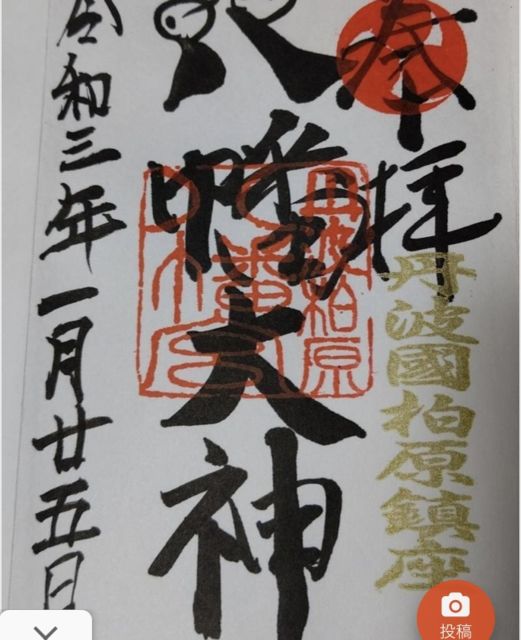 奉拝
丹波國柏原鎮座
八幡大神
丹波柏原
令和三年一月廿五日
投稿